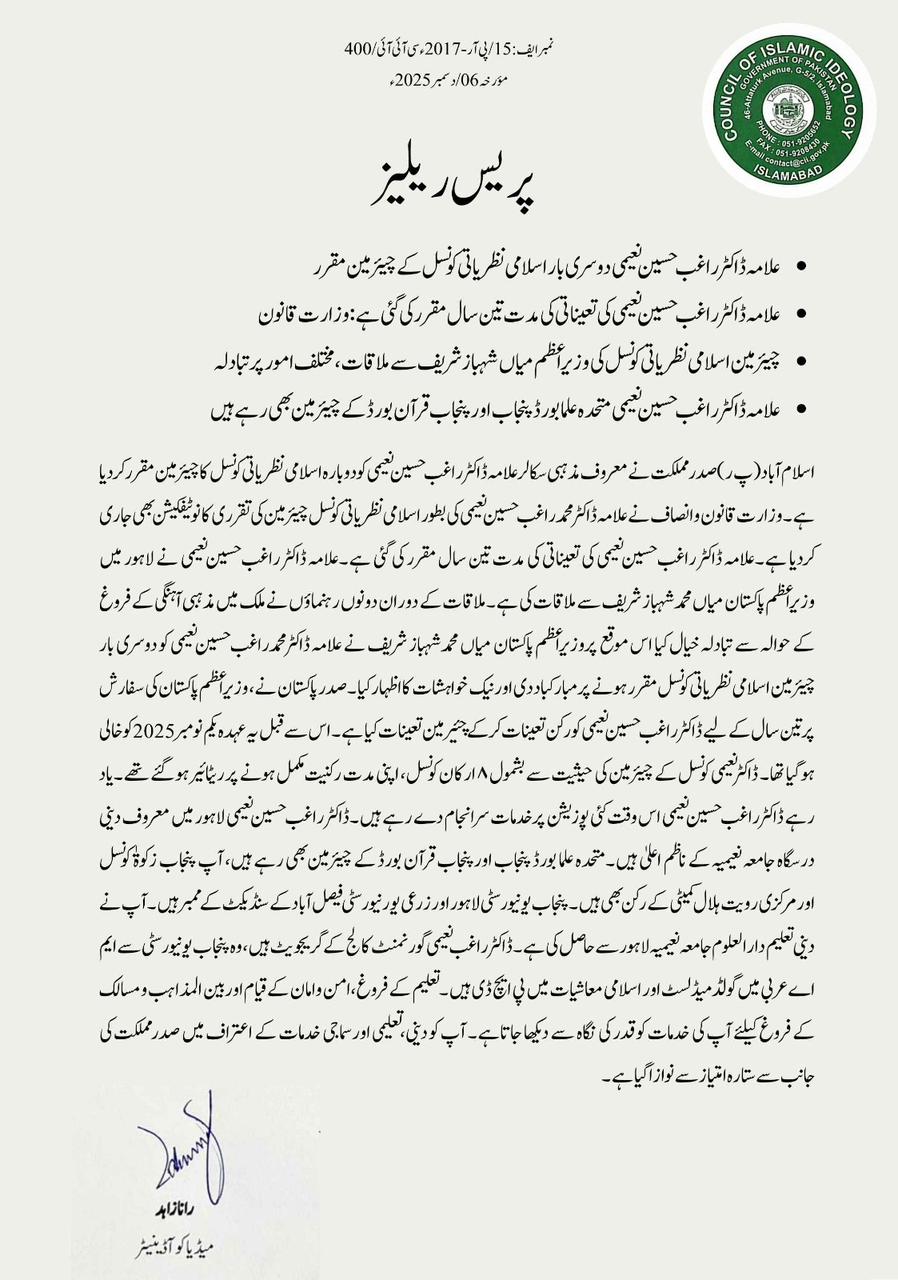 نمبر ایف: 15/پی آر-2017ء سی آئی آئی/400
مؤرخہ 06/دسمبر 2025ء
COUNCIL OF ISLAMIC IDEOLOGY
GOVERNMENT OF PAKISTAN
46-Attaturk Avenue, G-5/2, Islamabad
PHONE : 051-9205652
FAX : 051-9208430
E-mail contact@cii.gov.pk
ISLAMABAD
پریس ریلیز
• علامہ ڈاکٹر راغب حسین نعیمی دوسری بار اسلامی نظریاتی کونسل کے چیئرمین مقرر
• علامہ ڈاکٹر راغب حسین نعیمی کی تعیناتی کی مدت تین سال مقرر کی گئی ہے: وزارت قانون
• چیئرمین اسلامی نظریاتی کونسل کی وزیراعظم میاں شہباز شریف سے ملاقات، مختلف امور پر تبادلہ
• علامہ ڈاکٹر راغب حسین نعیمی متحدہ علما بورڈ پنجاب اور پنجاب قرآن بورڈ کے چیئرمین بھی رہے ہیں
اسلام آباد (پ ر) صدر مملکت نے معروف مذہبی سکالر علامہ ڈاکٹر راغب حسین نعیمی کو دوبارہ اسلامی نظریاتی کونسل کا چیئرمین مقرر کردیا
ہے۔ وزارت قانون و انصاف نے علامہ ڈاکٹر محمد راغب حسین نعیمی کی بطور اسلامی نظریاتی کونسل چیئرمین کی تقرری کا نوٹیفکیشن بھی جاری
کردیا ہے۔ علامہ ڈاکٹر راغب حسین نعیمی کی تعیناتی کی مدت تین سال مقرر کی گئی ہے۔ علامہ ڈاکٹر راغب حسین نعیمی نے لاہور میں
وزیراعظم پاکستان میاں محمد شہباز شریف سے ملاقات کی ہے۔ ملاقات کے دوران دونوں رہنماؤں نے ملک میں مذہبی آہنگی کے فروغ
کے حوالہ سے تبادلہ خیال کیا اس موقع پر وزیراعظم پاکستان میاں محمد شہباز شریف نے علامہ ڈاکٹر محمد راغب حسین نعیمی کو دوسری بار
چیئرمین اسلامی نظریاتی کونسل مقرر ہونے پر مبارکباد دی اور نیک خواہشات کا اظہار کیا۔ صدر پاکستان نے، وزیراعظم پاکستان کی سفارش
پر تین سال کے لیے ڈاکٹر راغب حسین نعیمی کو رکن تعینات کرکے چئیرمین تعینات کیا ہے۔ اس سے قبل یہ عہدہ یکم نومبر 2025 کو خالی
ہوگیا تھا۔ ڈاکٹر نعیمی کونسل کے چیئرمین کی حیثیت سے بشمول ۸ ارکان کونسل، اپنی مدت رکنیت مکمل ہونے پر ریٹائیر ہوگئے تھے۔ یاد
رہے ڈاکٹر راغب حسین نعیمی اس وقت کئی پوزیشن پر خدمات سرانجام دے رہے ہیں۔ ڈاکٹر راغب حسین نعیمی لاہور میں معروف دینی
درسگاہ جامعہ نعیمیہ کے ناظم اعلیٰ ہیں۔ متحدہ علما بورڈ پنجاب اور پنجاب قرآن بورڈ کے چیئرمین بھی رہے ہیں، آپ پنجاب زکوۃ کونسل
اور مرکزی رویت ہلال کمیٹی کے رکن بھی ہیں۔ پنجاب یونیورسٹی لاہور اور زرعی یورنیورسٹی فیصل آباد کے سنڈیکٹ کے ممبر ہیں۔ آپ نے
دینی تعلیم دارالعلوم جامعہ نعیمیہ لاہور سے حاصل کی ہے۔ ڈاکٹر راغب نعیمی گورنمنٹ کالج کے گریجویٹ ہیں، وہ پنجاب یونیورسٹی سے ایم
اے عربی میں گولڈ میڈلسٹ اور اسلامی معاشیات میں پی ایچ ڈی ہیں۔ تعلیم کے فروغ، امن و امان کے قیام اور بین المذاہب و مسالک
کے فروغ کیلئے آپ کی خدمات کو قدر کی نگاہ سے دیکھا جاتا ہے۔ آپ کو دینی، تعلیمی اور سماجی خدمات کے اعتراف میں صدر مملکت کی
جانب سے ستارہ امتیاز سے نوازا گیا ہے۔
رانا زاہد
میڈیا کوآڈینیٹر